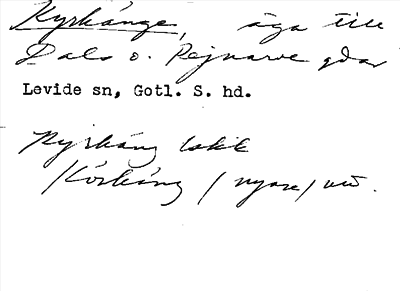 Kyrkänge, äga till
Dals o. Rejnarve gdar
Levide sn, Gotl. S. hd.
Kyrkäng
/ nyare /